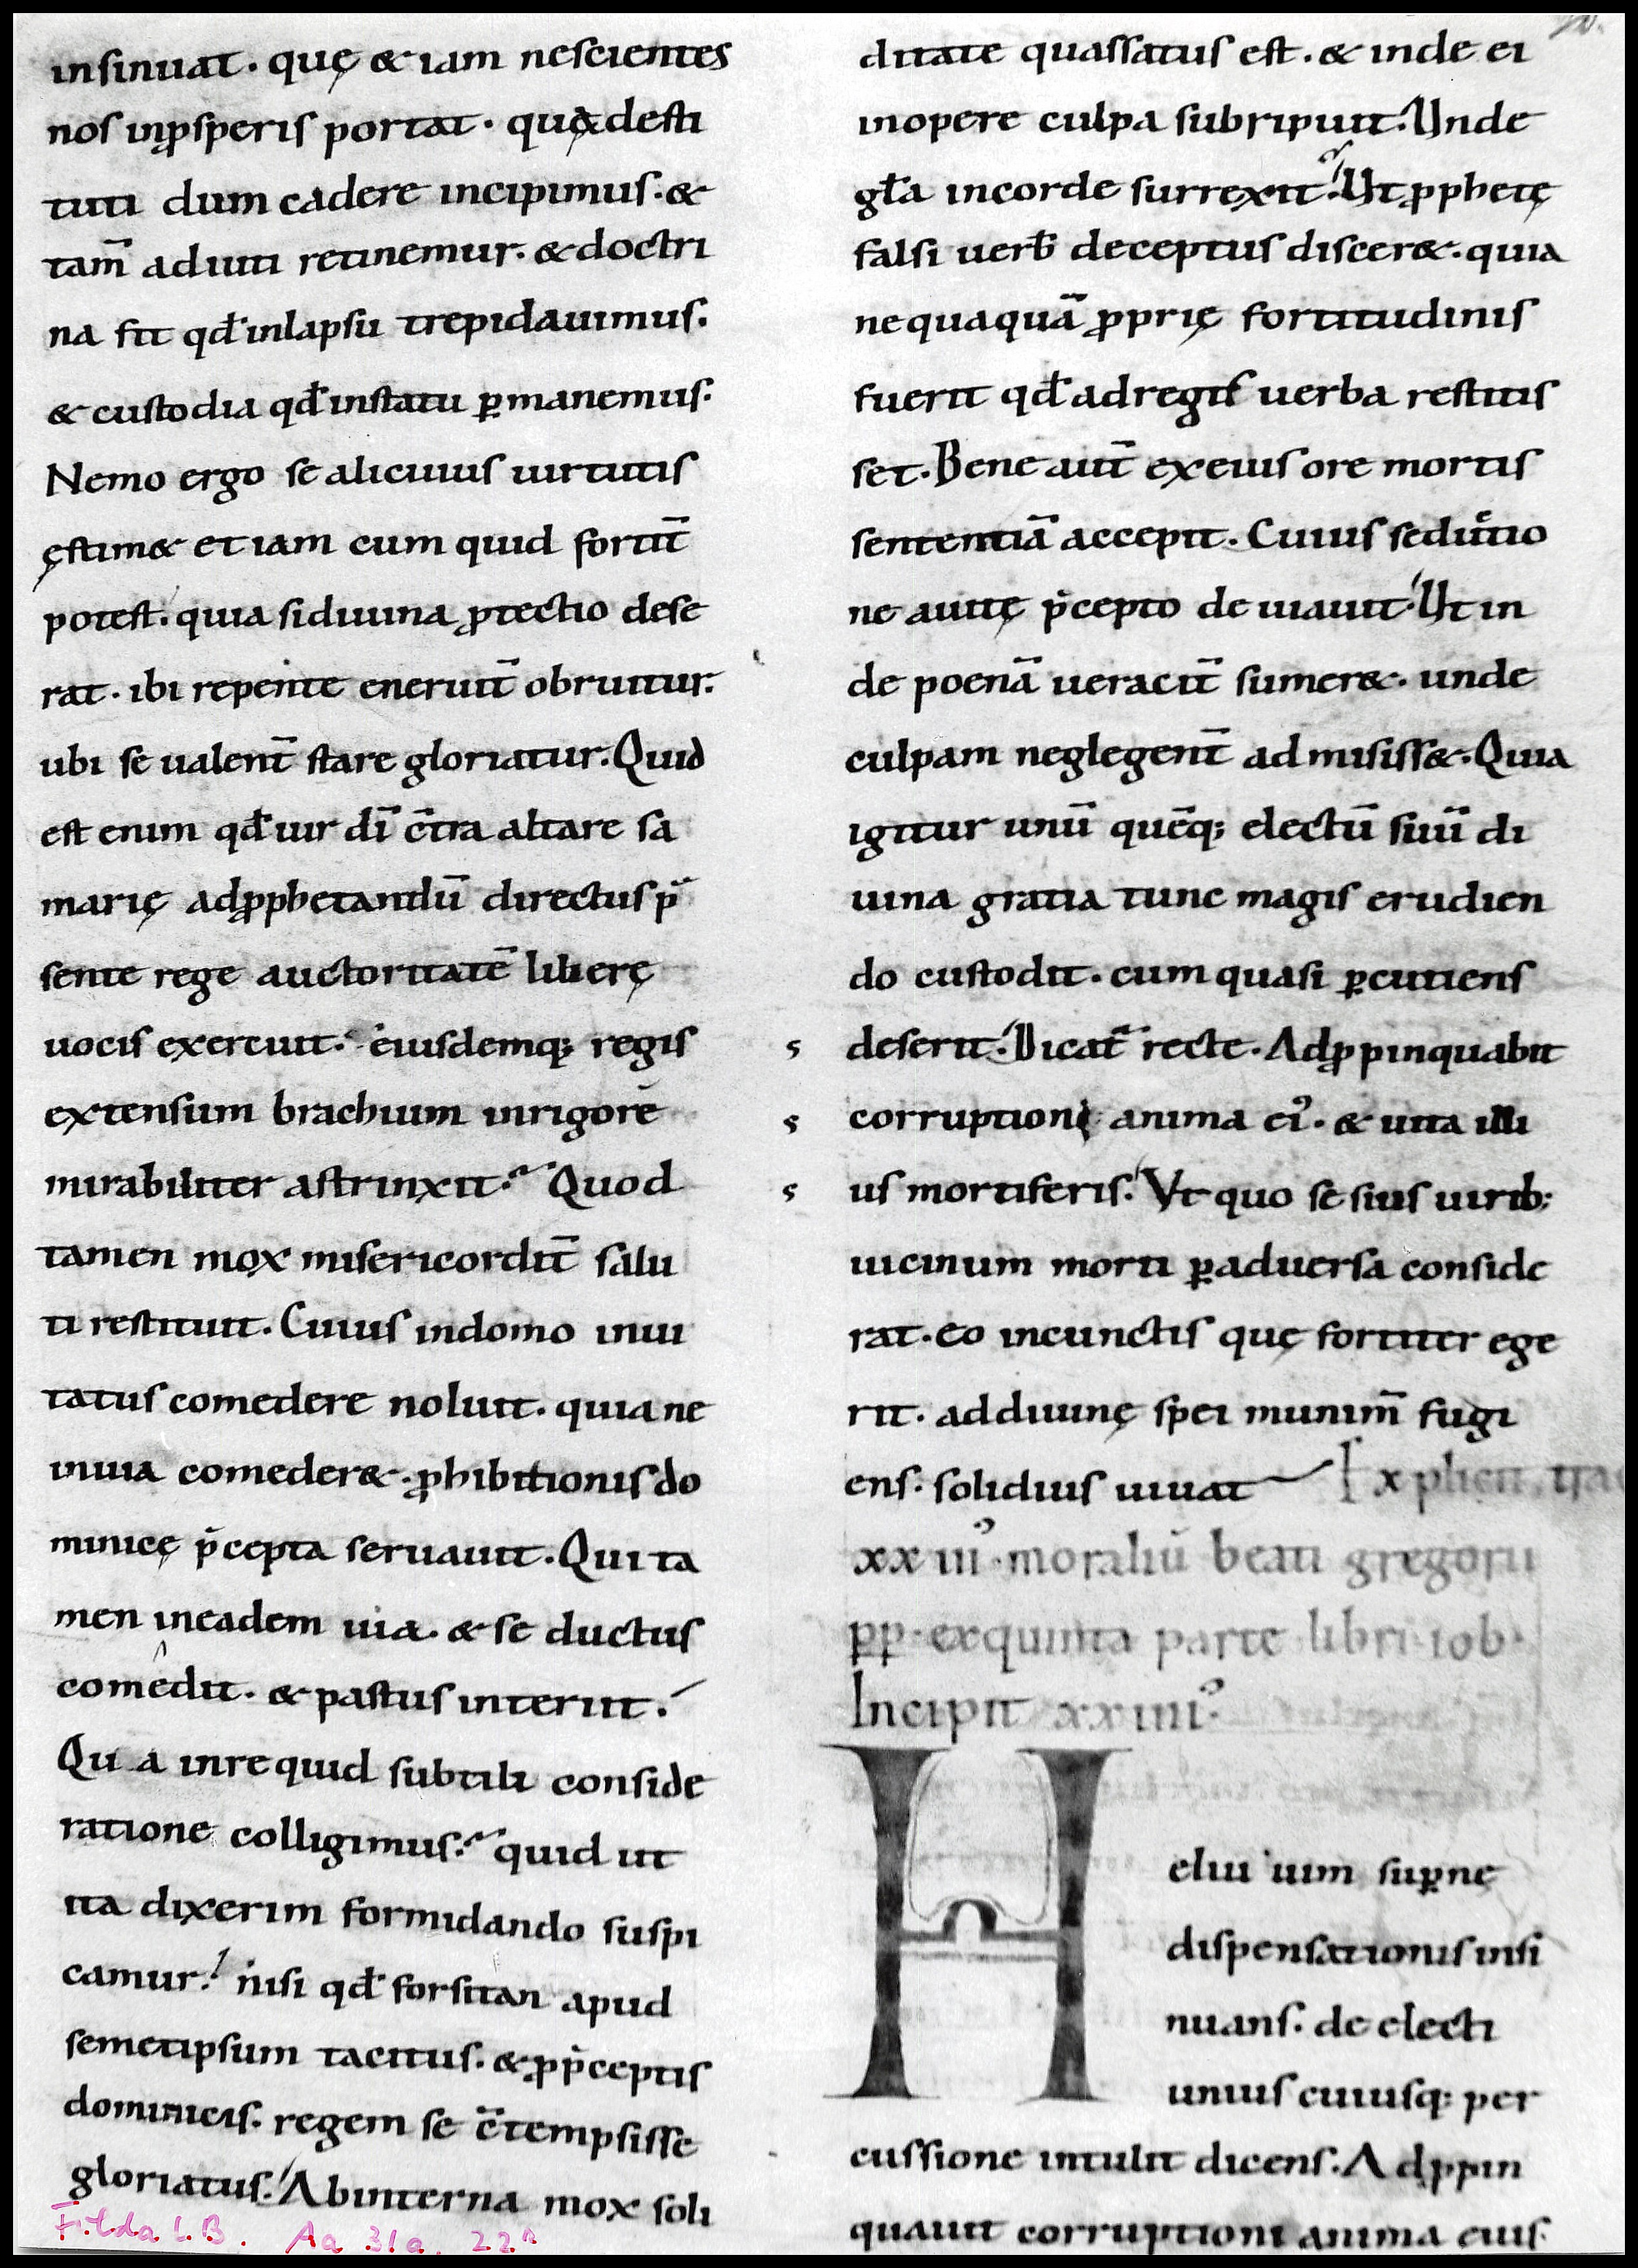 insinuat. quę & iam nescientes
nos inꝓsperis portat. quę & desti
tuti dum cadere incipimus. &
tam̄ adiuti retinemur. & doctri
na fit qđ inlapsu trepidauimus.
& custodia qđ instatu ꝑmanemus.
Nemo ergo se alicuius uirtutis
ęstim& etiam cum quid fortit̄
potest. quia si diuina ꝓtectio dese
rat. ibi repente eneruit̄ obruitur.
ubi se ualent̄ stare gloriatur. Quid
est enim qđ uir dī c̄tra altare sa
marię adꝓphetandū directus p̄
sente rege auctoritatē liberę
uocis exercuit. eiusdemq; regis
extensum brachium inrigorē
mirabiliter astrinxit. Quod
tamen mox misericordit̄ salu
ti restituit. Cuius indomo inui
tatus comedere noluit. quia ne
inuia comeder&. ꝓhibitionis do
minicę p̄cepta seruauit. Qui ta
men ineadem uia. & seductus
comedit. & pastus interiit.
Qu a inre quid subtili conside
ratione colligimus. quid ut
ita dixerim formidando suspi
camur. nisi qđ forsitan apud
semetipsum tacitus. & ꝓ p̄ceptis
dominicis. regem se c̄tempsisse
gloriatus. Abinterna mox soli
ditate quassatus est. & inde ei
inopere culpa subripuit. Unde
gła incorde surrexit. Ut ꝓphetę
falsi uerb̄ deceptus discer&. quia
nequaquā ꝓprię fortitudinis
fuerit qđ adregis uerba restitis
set. Bene aut̄ exeius ore mortis
sententiā accepit. Cuius seductio
ne auitę p̄cepto deuiauit. Ut in
de poenā ueracit̄ sumer&. unde
culpam neglegent̄ admisiss&. Quia
igitur unū quēq; electū suū di
uina gratia tunc magis erudien
do custodit. cum quasi ꝑcutiens
deserit. Dicat̄ recte. Adꝓpinquabit
corruptioni anima ei᾿. & uita illi
us mortiferis. Vt quo se suis uirib;
uicinum morti ꝑaduersa conside
rat. eo incunctis quę fortiter ege
rit. addiuinę spei munim̄ fugi
ens. solidius uiuat Explicit. trac
xxiii᾿. moraliū beati gregorii
pp. exquinta parte libri iob.
Incipit xxiiii᾿.
H
eliu uim suꝑnę
dispensationis insi
nuans. de electi
unius cuiusq; per
cussione intulit dicens. Adꝓpin
quauit corruptioni anima eius.
Fulda L.B. Aa 31a. 22r